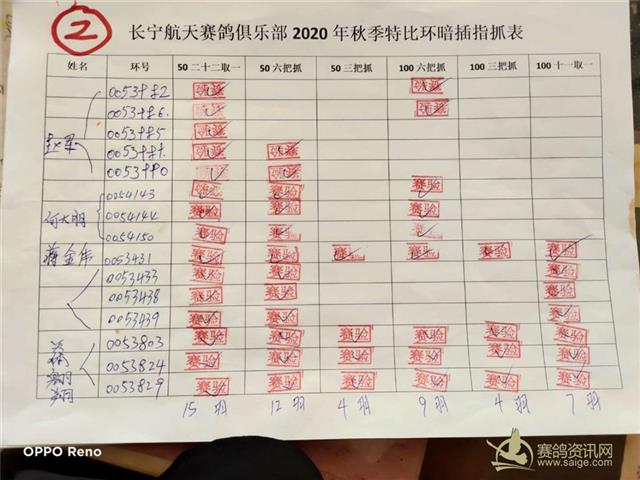 ②
长宁航天赛鸽俱乐部 2020 年秋季特比环暗插指抓表
姓名 环号 50 二十二取一 50 六把抓 50 三把抓 100 六把抓 100 三把抓 100 十一取一
赛验 赛验
赛验 赛验
赛验
赛验 赛验
赛验
0054143 赛验 赛验 赛验
何大明 0054144 赛验 赛验 赛验
0054150 赛验 赛验 赛验
蒋金库 0053431 赛验 赛验 赛验 赛验 赛验 赛验
0053433 赛验 赛验 赛验
0053438 赛验 赛验 赛验
0053439 赛验 赛验 赛验
0053803 赛验 赛验 赛验 赛验 赛验 赛验
0053824 赛验 赛验 赛验 赛验 赛验 赛验
0053829 赛验 赛验 赛验 赛验 赛验 赛验
15 羽 12 羽 4 羽 9 羽 4 羽 7 羽
OPPO Reno
赛鸽资讯网
www.saige.com